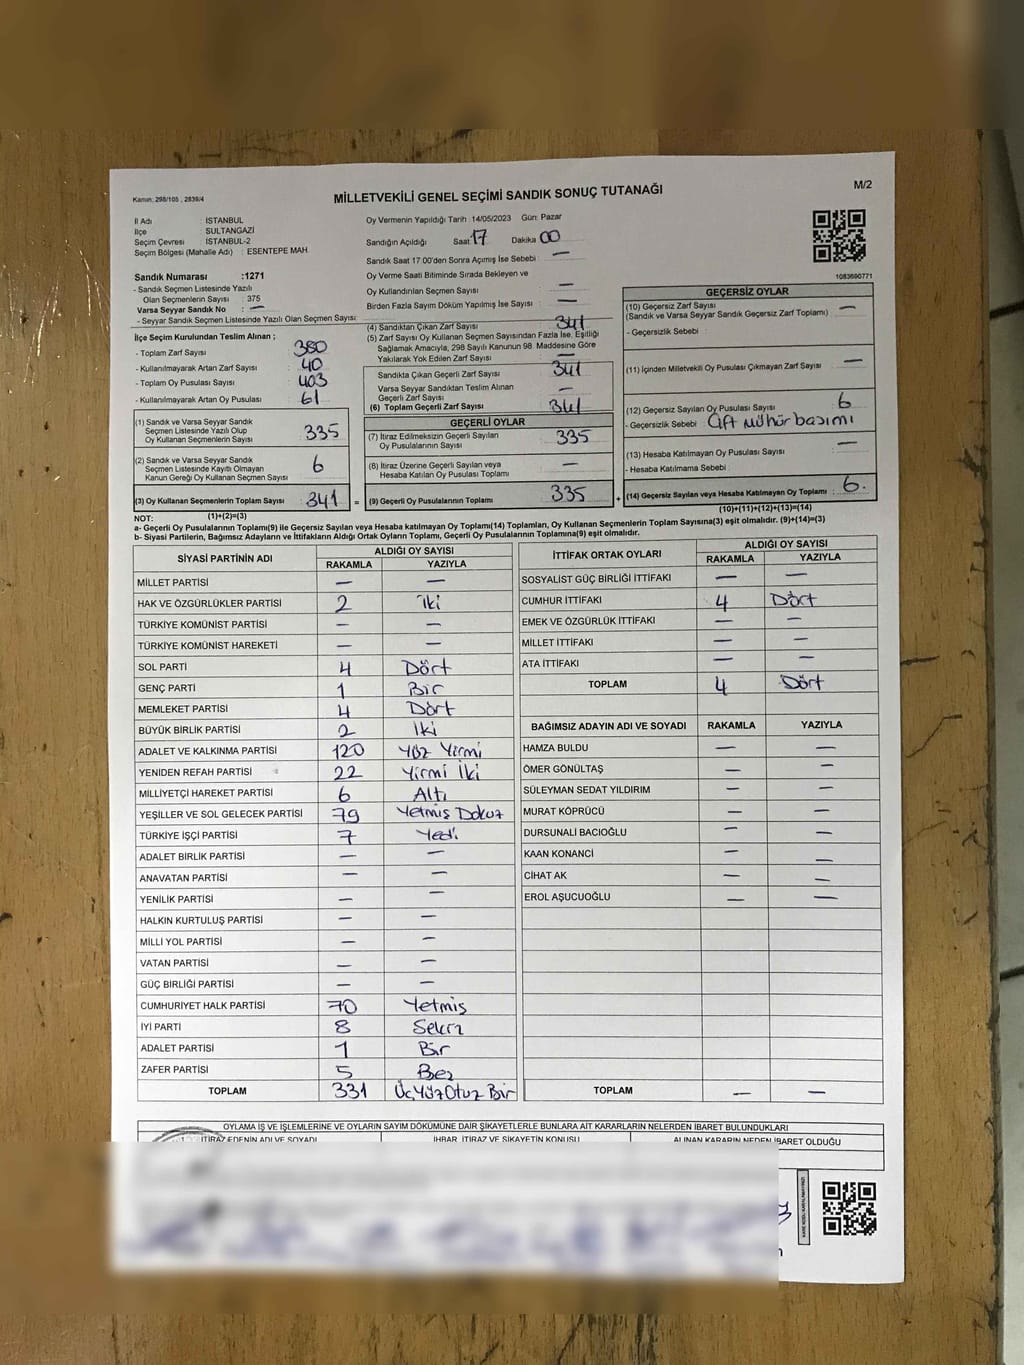 Kanun: 298/105 , 2839/4
MİLLETVEKİLİ GENEL SEÇİMİ SANDIK SONUÇ TUTANAĞI
M/2
İl Adı : İSTANBUL
İlçe : SULTANGAZİ
Seçim Çevresi : İSTANBUL-2
Seçim Bölgesi (Mahalle Adı) : ESENTEPE MAH.
Oy Vermenin Yapıldığı Tarih : 14/05/2023 Gün: Pazar
Sandığın Açıldığı Saat: 17 Dakika: 00
Sandık Saat 17.00'den Sonra Açımış İse Sebebi : —
Oy Verme Saati Bitiminde Sırada Bekleyen ve
Oy Kullandırılan Seçmen Sayısı : —
Birden Fazla Sayım Döküm Yapılmış İse Sayısı : —
1083690771
Sandık Numarası :1271
- Sandık Seçmen Listesinde Yazılı
Olan Seçmenlerin Sayısı : 375
Varsa Seyyar Sandık No : —
- Seyyar Sandık Seçmen Listesinde Yazılı Olan Seçmen Sayısı:
İlçe Seçim Kurulundan Teslim Alınan ;
- Toplam Zarf Sayısı : 380
- Kullanılmayarak Artan Zarf Sayısı : 40
- Toplam Oy Pusulası Sayısı : 403
- Kullanılmayarak Artan Oy Pusulası : 61
(1) Sandık ve Varsa Seyyar Sandık
Seçmen Listesinde Yazılı Olup
Oy Kullanan Seçmenlerin Sayısı : 335
(2) Sandık ve Varsa Seyyar Sandık
Seçmen Listesinde Kayıtlı Olmayan
Kanun Gereği Oy Kullanan Seçmen Sayısı : 6
(3) Oy Kullanan Seçmenlerin Toplam Sayısı : 341 =
(1)+(2)=(3)
(4) Sandıktan Çıkan Zarf Sayısı : 341
(5) Zarf Sayısı Oy Kullanan Seçmen Sayısından Fazla İse, Eşitliği
Sağlamak Amacıyla, 298 Sayılı Kanunun 98. Maddesine Göre
Yakılarak Yok Edilen Zarf Sayısı : —
Sandıkta Çıkan Geçerli Zarf Sayısı : 341
Varsa Seyyar Sandıktan Teslim Alınan
Geçerli Zarf Sayısı : —
(6) Toplam Geçerli Zarf Sayısı : 341
GEÇERLİ OYLAR
(7) İtiraz Edilmeksizin Geçerli Sayılan
Oy Pusulalarının Sayısı : 335
(8) İtiraz Üzerine Geçerli Sayılan veya
Hesaba Katılan Oy Pusulası Toplamı : —
(9) Geçerli Oy Pusulalarının Toplamı : 335 +
GEÇERSİZ OYLAR
(10) Geçersiz Zarf Sayısı
(Sandık ve Varsa Seyyar Sandık Geçersiz Zarf Toplamı) : —
- Geçersizlik Sebebi :
(11) İçinden Milletvekili Oy Pusulası Çıkmayan Zarf Sayısı : —
(12) Geçersiz Sayılan Oy Pusulası Sayısı : 6
- Geçersizlik Sebebi : Çift Mühür basımı
(13) Hesaba Katılmayan Oy Pusulası Sayısı : —
- Hesaba Katılmama Sebebi :
(14) Geçersiz Sayılan veya Hesaba Katılmayan Oy Toplamı : 6.
(10)+(11)+(12)+(13)=(14)
NOT:
a- Geçerli Oy Pusulalarının Toplamı(9) ile Geçersiz Sayılan veya Hesaba katılmayan Oy Toplamı(14) Toplamları, Oy Kullanan Seçmenlerin Toplam Sayısına(3) eşit olmalıdır. (9)+(14)=(3)
b- Siyasi Partilerin, Bağımsız Adayların ve İttifakların Aldığı Ortak Oyların Toplamı, Geçerli Oy Pusulalarının Toplamına(9) eşit olmalıdır.
SİYASİ PARTİNİN ADI ALDIĞI OY SAYISI
RAKAMLA YAZIYLA
MİLLET PARTİSİ — —
HAK VE ÖZGÜRLÜKLER PARTİSİ 2 iki
TÜRKİYE KOMÜNİST PARTİSİ — —
TÜRKİYE KOMÜNİST HAREKETİ — —
SOL PARTİ 4 Dört
GENÇ PARTİ 1 Bir
MEMLEKET PARTİSİ 4 Dört
BÜYÜK BİRLİK PARTİSİ 2 İki
ADALET VE KALKINMA PARTİSİ 120 Yüz Yirmi
YENİDEN REFAH PARTİSİ 22 Yirmi İki
MİLLİYETÇİ HAREKET PARTİSİ 6 Altı
YEŞİLLER VE SOL GELECEK PARTİSİ 79 Yetmiş Dokuz
TÜRKİYE İŞÇİ PARTİSİ 7 Yedi
ADALET BİRLİK PARTİSİ — —
ANAVATAN PARTİSİ — —
YENİLİK PARTİSİ — —
HALKIN KURTULUŞ PARTİSİ — —
MİLLİ YOL PARTİSİ — —
VATAN PARTİSİ — —
GÜÇ BİRLİĞİ PARTİSİ — —
CUMHURİYET HALK PARTİSİ 70 Yetmiş
İYİ PARTİ 8 Sekiz
ADALET PARTİSİ 1 Bir
ZAFER PARTİSİ 5 Beş
TOPLAM 331 ÜçYüzOtuz Bir
İTTİFAK ORTAK OYLARI ALDIĞI OY SAYISI
RAKAMLA YAZIYLA
SOSYALİST GÜÇ BİRLİĞİ İTTİFAKI — —
CUMHUR İTTİFAKI 4 Dört
EMEK VE ÖZGÜRLÜK İTTİFAKI — —
MİLLET İTTİFAKI — —
ATA İTTİFAKI — —
TOPLAM 4 Dört
BAĞIMSIZ ADAYIN ADI VE SOYADI RAKAMLA YAZIYLA
HAMZA BULDU — —
ÖMER GÖNÜLTAŞ — —
SÜLEYMAN SEDAT YILDIRIM — —
MURAT KÖPRÜCÜ — —
DURSUNALİ BACIOĞLU — —
KAAN KONANCİ — —
CİHAT AK — —
EROL AŞUCUOĞLU — —
TOPLAM — —
OYLAMA İŞ VE İŞLEMLERİNE VE OYLARIN SAYIM DÖKÜMÜNE DAİR ŞİKAYETLERLE BUNLARA AİT KARARLARIN NELERDEN İBARET BULUNDUKLARI
İTİRAZ EDENİN ADI VE SOYADI İHBAR, İTİRAZ VE ŞİKAYETİN KONUSU ALINAN KARARIN NEDEN İBARET OLDUĞU